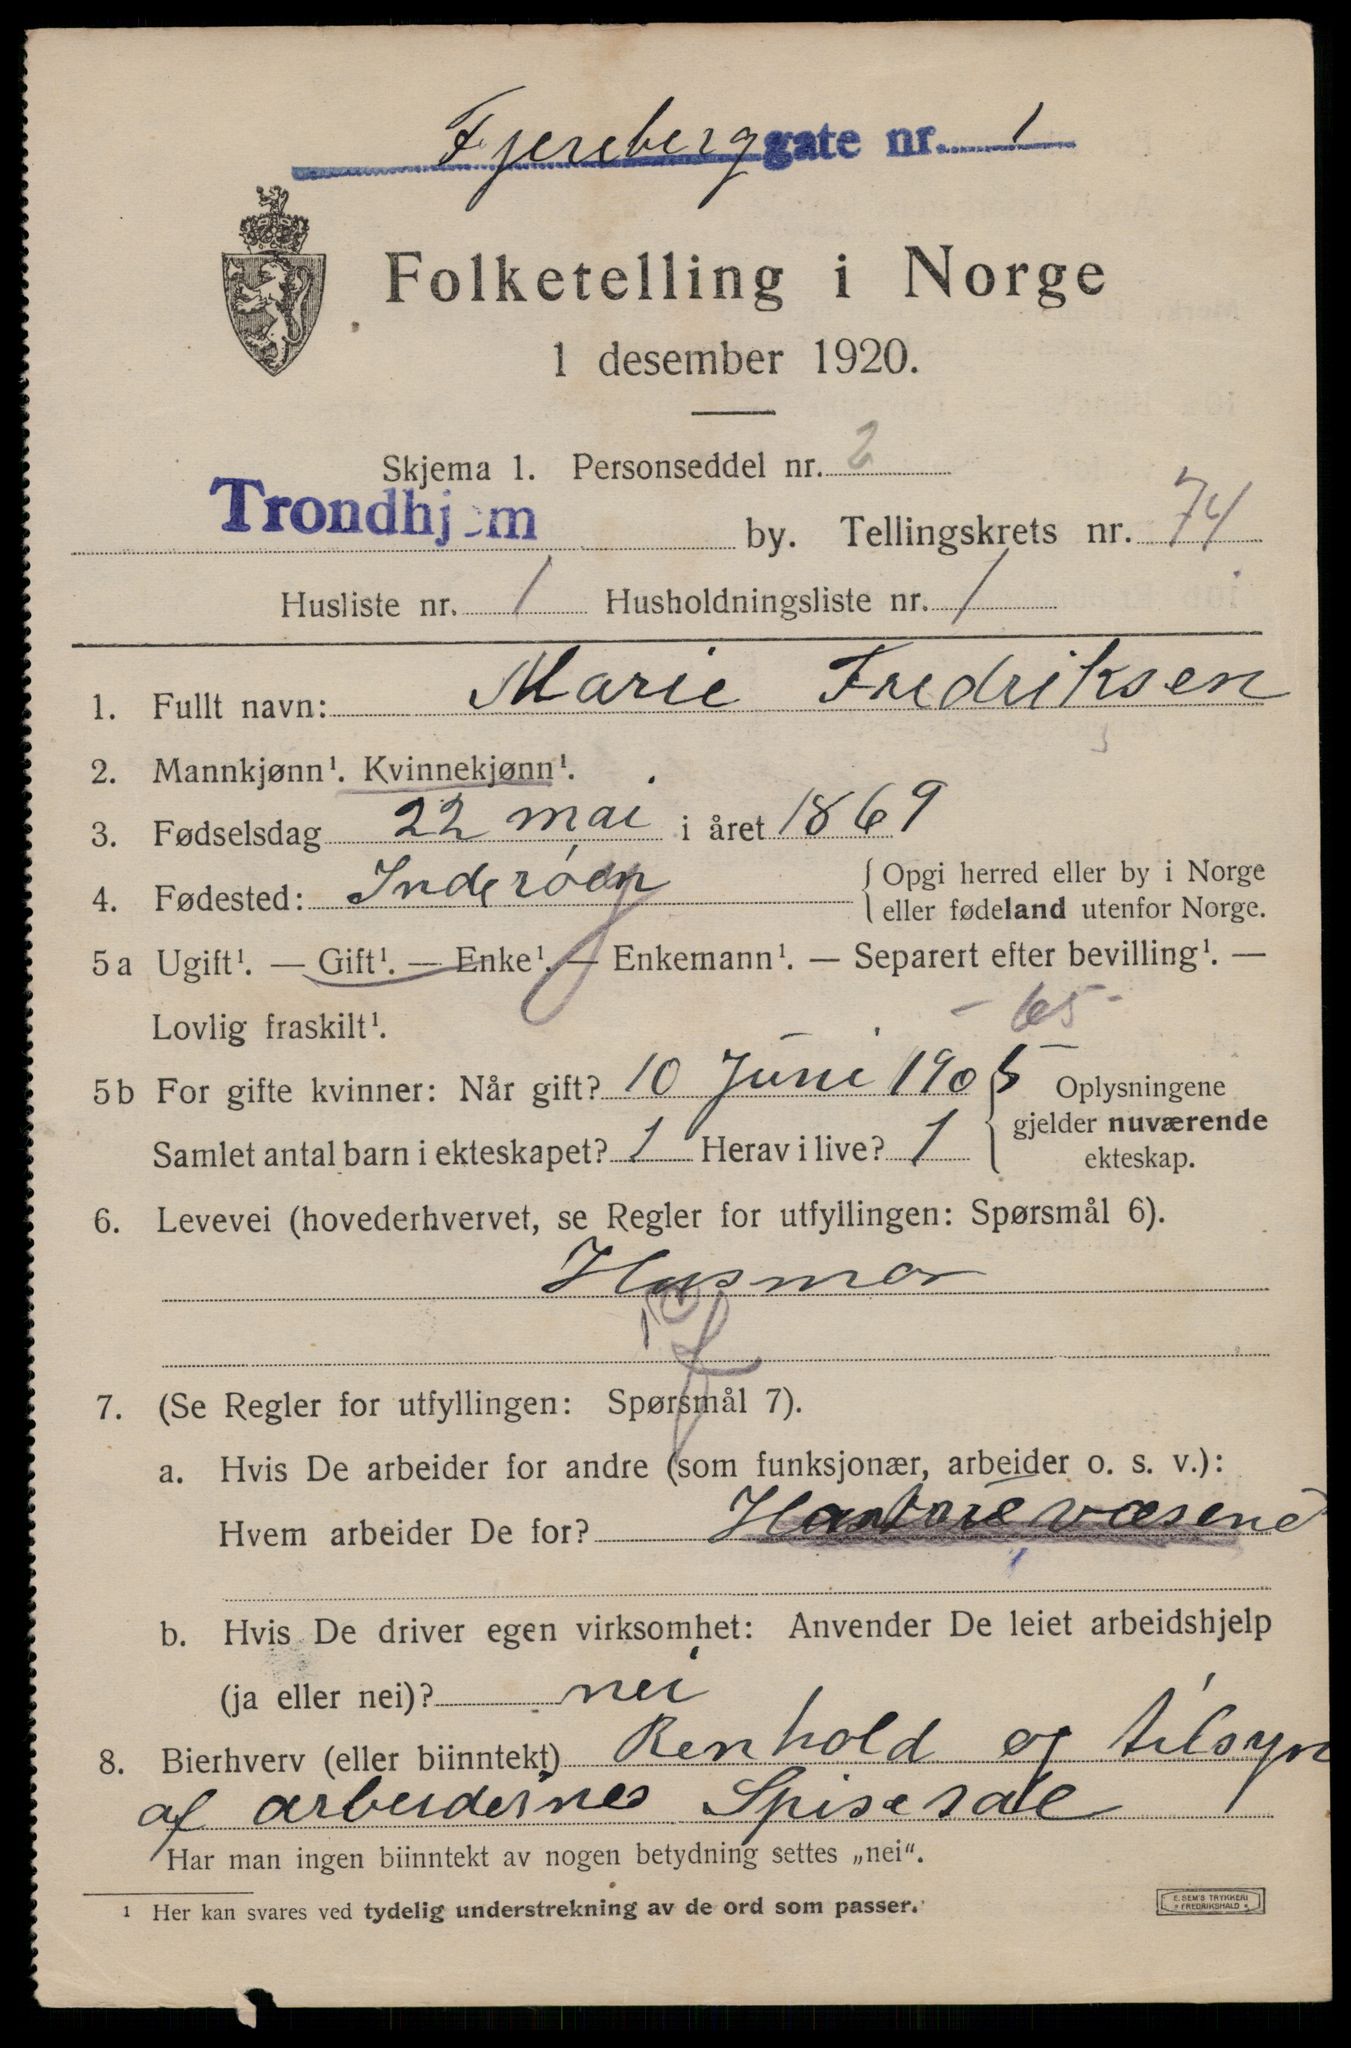 Fjereberggate nr. 1
Folketelling i Norge
1 desember 1920.
Skjema 1. Personseddel nr. 2
Trondhjem by. Tellingskrets nr. 74
Husliste nr. 1 Husholdningsliste nr. 1
1. Fullt navn: Marie Fredriksen
2. Mannkjønn¹. Kvinnekjønn¹.
3. Fødselsdag 22 mai i året 1869
4. Fødested: Inderöen { Opgi herred eller by i Norge
eller fødeland utenfor Norge.
5a Ugift¹. — Gift¹. — Enke¹. — Enkemann¹. — Separert efter bevilling¹. —
Lovlig fraskilt¹.
- 65 -
5b For gifte kvinner: Når gift? 10 Juni 1905 { Oplysningene
gjelder nuværende
Samlet antal barn i ekteskapet? 1 Herav i live? 1
ekteskap.
6. Levevei (hovederhvervet, se Regler for utfyllingen: Spørsmål 6).
Husmor
7. (Se Regler for utfyllingen: Spørsmål 7).
a. Hvis De arbeider for andre (som funksjonær, arbeider o. s. v.):
Hvem arbeider De for?
b. Hvis De driver egen virksomhet: Anvender De leiet arbeidshjelp
(ja eller nei)? nei
8. Bierhverv (eller biinntekt) Renhold og tilsyn
af arbeidernes Spisesale
Har man ingen biinntekt av nogen betydning settes „nei“.
¹ Her kan svares ved tydelig understrekning av de ord som passer.
E. SEM'S TRYKKERI
FREDRIKSHALD